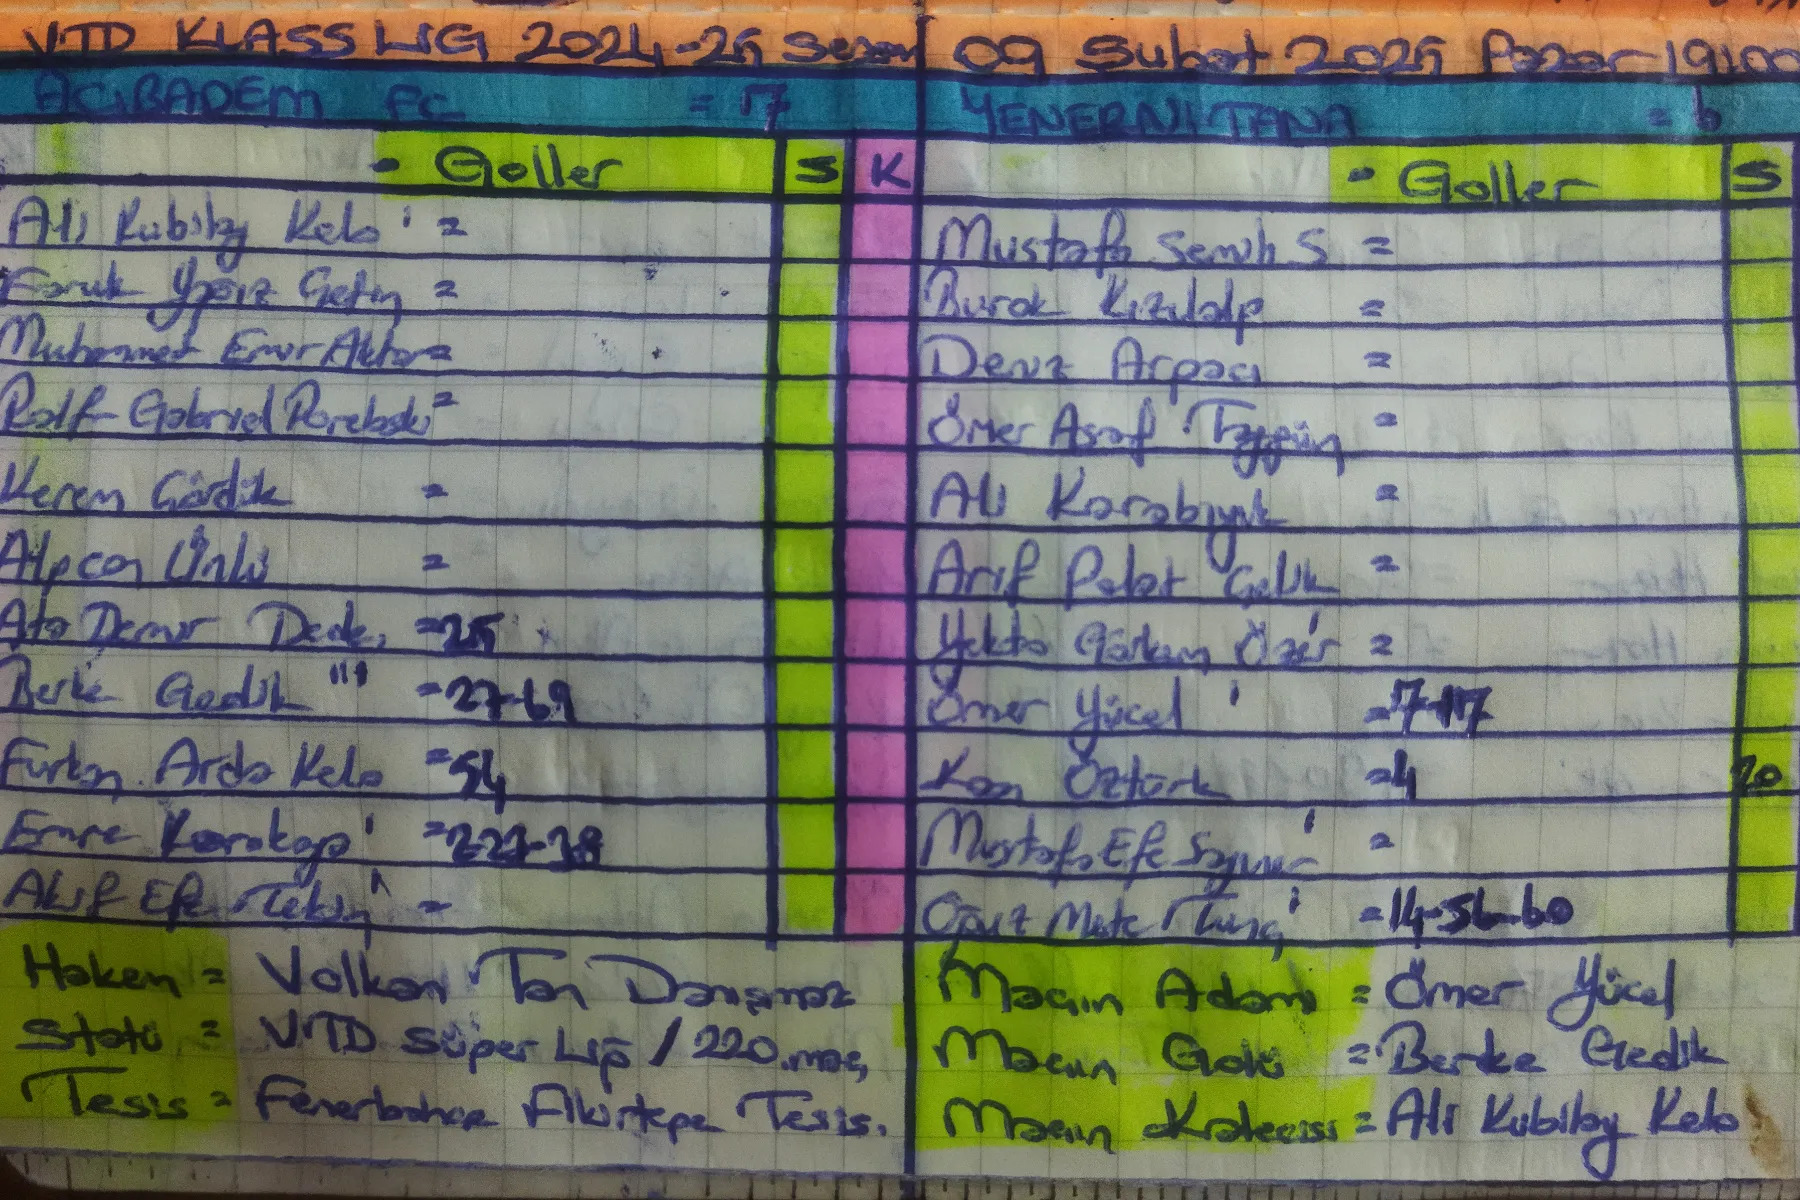 VTD KLASS LİG 2024-25 Sezon
ACIBADEM FC = 17
- Goller S K
Ali Kubilay Kelo ' =
Faruk Yağız Çetin =
Muhammed Emir Aktar =
Ralf Gabriel Porebski =
Kerem Gördük =
Alpcan Ünlü =
Ata Demir Dede, =25
Berke Gedik ''' =27-69
Furkan Arda Kelo =54
Emre Karakaya ' =
Akif Efe Tekin ' =
Hakem = Volkan Tan Danışmaz
Statü = VTD Süper Lig / 220.maç
Tesis = Fenerbahçe Fikirtepe Tesis.
09 Şubat 2025 Pazar 19:00
YENERNİTANA = 6
- Goller S
Mustafa Semih S =
Burak Kızılalp =
Deniz Arpacı =
Ömer Asaf Taygün =
Ali Karabıyık =
Arif Polat Çelik =
Yekta Görkem Özer =
Ömer Yücel ' =7-17
Kaan Öztürk =4 20
Mustafa Efe ' =
Oğuz Mete Tunç ' =14-56-60
Maçın Adamı = Ömer Yücel
Maçın Golü = Berke Gedik
Maçın Kalecisi = Ali Kubilay Kelo